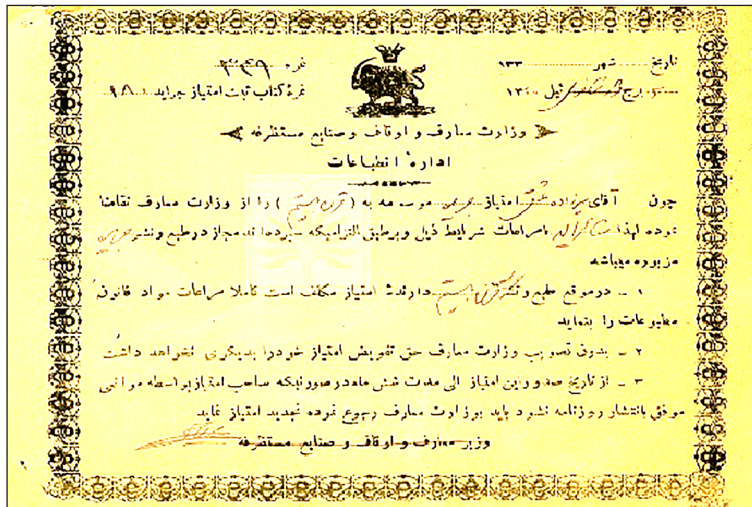 تاریخ شهر ۹۳۳ نمره
برج ئیل ۱۳۰۰ نمرهٔ کتاب ثبت امتیاز جراید ۹۸
وزارت معارف و اوقاف و صنایع مستظرفه
ادارهٔ انطباعات
چون آقای میرزاده عشقی امتیاز موسومه به (قرن بیستم) را از وزارت معارف تقاضا
نموده لهذا بامراعات شرایط ذیل و برطبق التزامیکه سپرده‌اند مجاز در طبع و نشر
مزبوره میباشد
۱ ـ در موقع طبع و نشر قرن بیستم دارندهٔ امتیاز مکلف است کاملا مراعات مواد قانون
مطبوعات را بنماید
۲ ـ بدون تصویب وزارت معارف حق تفویض امتیاز خود را بدیگری نخواهد داشت
۳ ـ از تاریخ صدور این امتیاز الی مدت شش ماه در صورتیکه صاحب امتیاز بواسطه موانعی
موفق بانتشار روزنامه نشود باید بوزارت معارف رجوع نموده تجدید امتیاز نماید
وزیر معارف و اوقاف و صنایع مستظرفه